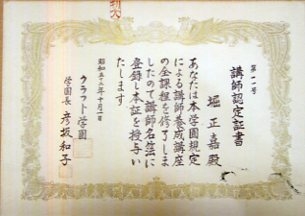 第一一号
講師認定証書
堀正嘉殿
あなたは本学園規定
による講師養成講座
の全課程を修了しま
したので講師名簿に
登録し本証を授与い
たします
昭和五十二年十月一日
クラフト学園
学園長 彦坂和子